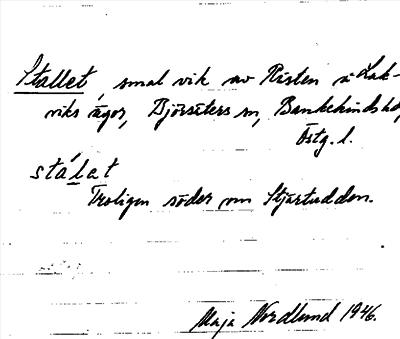 Stallet, smal vik av Risten i Lak-
viks ägor, Björsäters sn, Bankekinds hd,
Östg. l.
stálat
Troligen söder om Stjärtudden.
Maja Nordlund 1946.